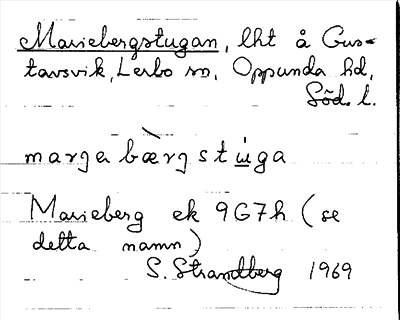 Mariebergstugan, lht å Gus-
tavsvik, Lerbo sn, Oppunda hd,
Söd. l.
marjebàrjstuga
Marieberg ek 9G7h (se
detta namn)
S. Strandberg 1969